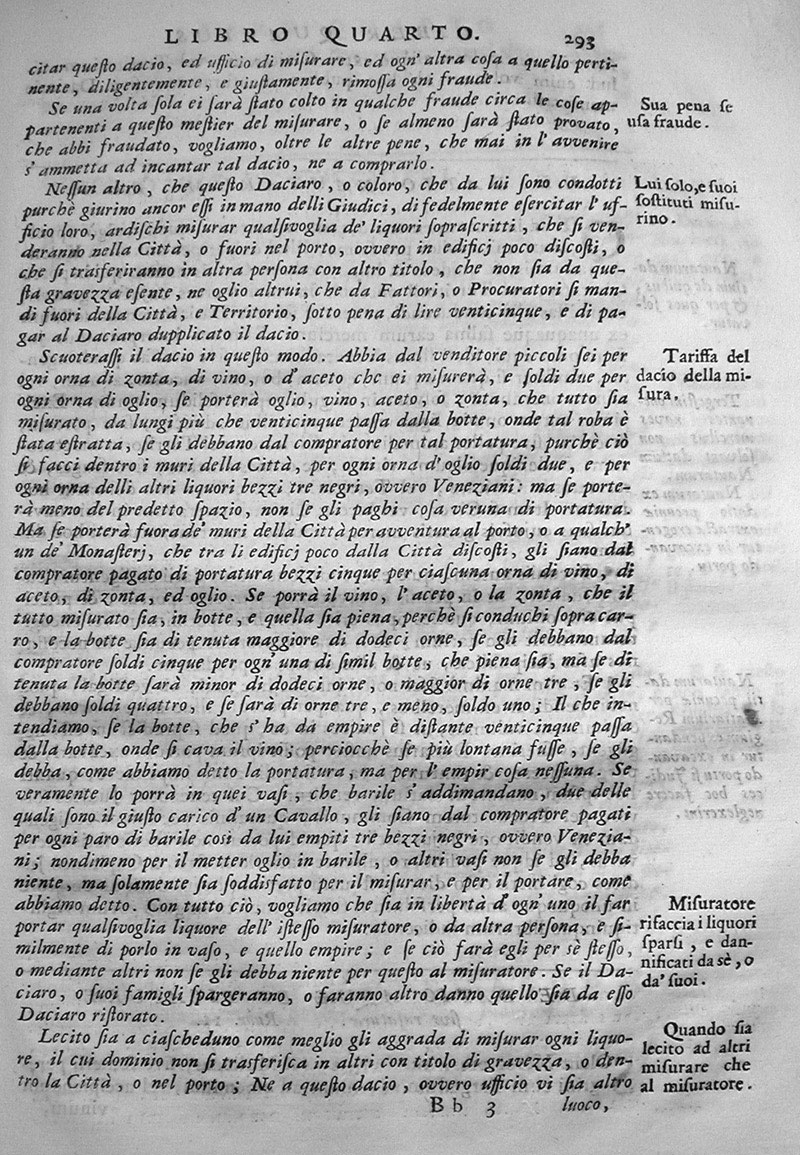 LIBRO QUARTO. 293
citar queſto dacio, ed ufficio di miſurare, ed ogn' altra coſa a quello perti-
nente, diligentemente, e giuſtamente, rimoſſa ogni fraude.
Se una volta ſola ei ſarà ſtato colto in qualche fraude circa le coſe ap-
partenenti a queſto meſtier del miſurare, o ſe almeno ſarà ſtato provato,
che abbi fraudato, vogliamo, oltre le altre pene, che mai in l' avvenire
s' ammetta ad incantar tal dacio, ne a comprarlo.
Sua pena ſe
uſa fraude.
Neſſun altro, che queſto Daciaro, o coloro, che da lui ſono condotti
purchè giurino ancor eſſi in mano delli Giudici, di fedelmente eſercitar l' uf-
ficio loro, ardiſchi miſurar qualſivoglia de' liquori ſopraſcritti, che ſi ven-
deranno nella Città, o fuori nel porto, ovvero in edificj poco diſcoſti, o
che ſi trasferiranno in altra perſona con altro titolo, che non ſia da que-
ſta gravezza eſente, ne oglio altrui, che da Fattori, o Procuratori ſi man-
di fuori della Città, e Territorio, ſotto pena di lire venticinque, e di pa-
gar al Daciaro dupplicato il dacio.
Lui ſolo, e ſuoi
ſoſtituti miſu-
rino.
Scuoteraſſi il dacio in queſto modo. Abbia dal venditore piccoli ſei per
ogni orna di zonta, di vino, o d' aceto che ei miſurerà, e ſoldi due per
ogni orna di oglio, ſe porterà oglio, vino, aceto, o zonta, che tutto ſia
miſurato, da lungi più che venticinque paſſa dalla botte, onde tal roba è
ſtata eſtratta, ſe gli debbano dal compratore per tal portatura, purchè ciò
ſi facci dentro i muri della Città, per ogni orna d' oglio ſoldi due, e per
ogni orna delli altri liquori bezzi tre negri, ovvero Veneziani: ma ſe porte-
rà meno del predetto ſpazio, non ſe gli paghi coſa veruna di portatura.
Ma ſe porterà fuora de' muri della Città per avventura al porto, o a qualch'
un de' Monaſterj, che tra li edificj poco dalla Città diſcoſti, gli ſiano dal
compratore pagato di portatura bezzi cinque per ciaſcuna orna di vino, di
aceto, di zonta, ed oglio. Se porrà il vino, l' aceto, o la zonta, che il
tutto miſurato ſia, in botte, e quella ſia piena, perchè ſi conduchi ſopra car-
ro, e la botte ſia di tenuta maggiore di dodeci orne, ſe gli debbano dal
compratore ſoldi cinque per ogn' una di ſimil botte, che piena ſia, ma ſe di
tenuta la botte ſarà minor di dodeci orne, o maggior di orne tre, ſe gli
debbano ſoldi quattro, e ſe ſarà di orne tre, e meno, ſoldo uno; Il che in-
tendiamo, ſe la botte, che s' ha da empire è diſtante venticinque paſſa
dalla botte, onde ſi cava il vino; perciocchè ſe più lontana fuſſe, ſe gli
debba, come abbiamo detto la portatura, ma per l' empir coſa neſſuna. Se
veramente lo porrà in quei vaſi, che barile s' addimandano, due delle
quali ſono il giuſto carico d' un Cavallo, gli ſiano dal compratore pagati
per ogni paro di barile così da lui empiti tre bezzi negri, ovvero Venezia-
ni; nondimeno per il metter oglio in barile, o altri vaſi non ſe gli debba
niente, ma ſolamente ſia ſoddisfatto per il miſurar, e per il portare, come
abbiamo detto. Con tutto ciò, vogliamo che ſia in libertà d' ogn' uno il far
portar qualſivoglia liquore dell' iſteſſo miſuratore, o da altra perſona, e ſi-
milmente di porlo in vaſo, e quello empire; e ſe ciò farà egli per sè ſteſſo,
o mediante altri non ſe gli debba niente per queſto al miſuratore. Se il Da-
ciaro, o ſuoi famigli ſpargeranno, o faranno altro danno quello ſia da eſſo
Daciaro riſtorato.
Tariffa del
dacio della mi-
ſura.
Miſuratore
rifaccia i liquori
ſparſi, e dan-
nificati da sè, o
da' ſuoi.
Lecito ſia a ciaſcheduno come meglio gli aggrada di miſurar ogni liquo-
re, il cui dominio non ſi trasferiſca in altri con titolo di gravezza, o den-
tro la Città, o nel porto; Ne a queſto dacio, ovvero ufficio vi ſia altro
Quando ſia
lecito ad altri
miſurare che
al miſuratore.
B b 3 luoco,